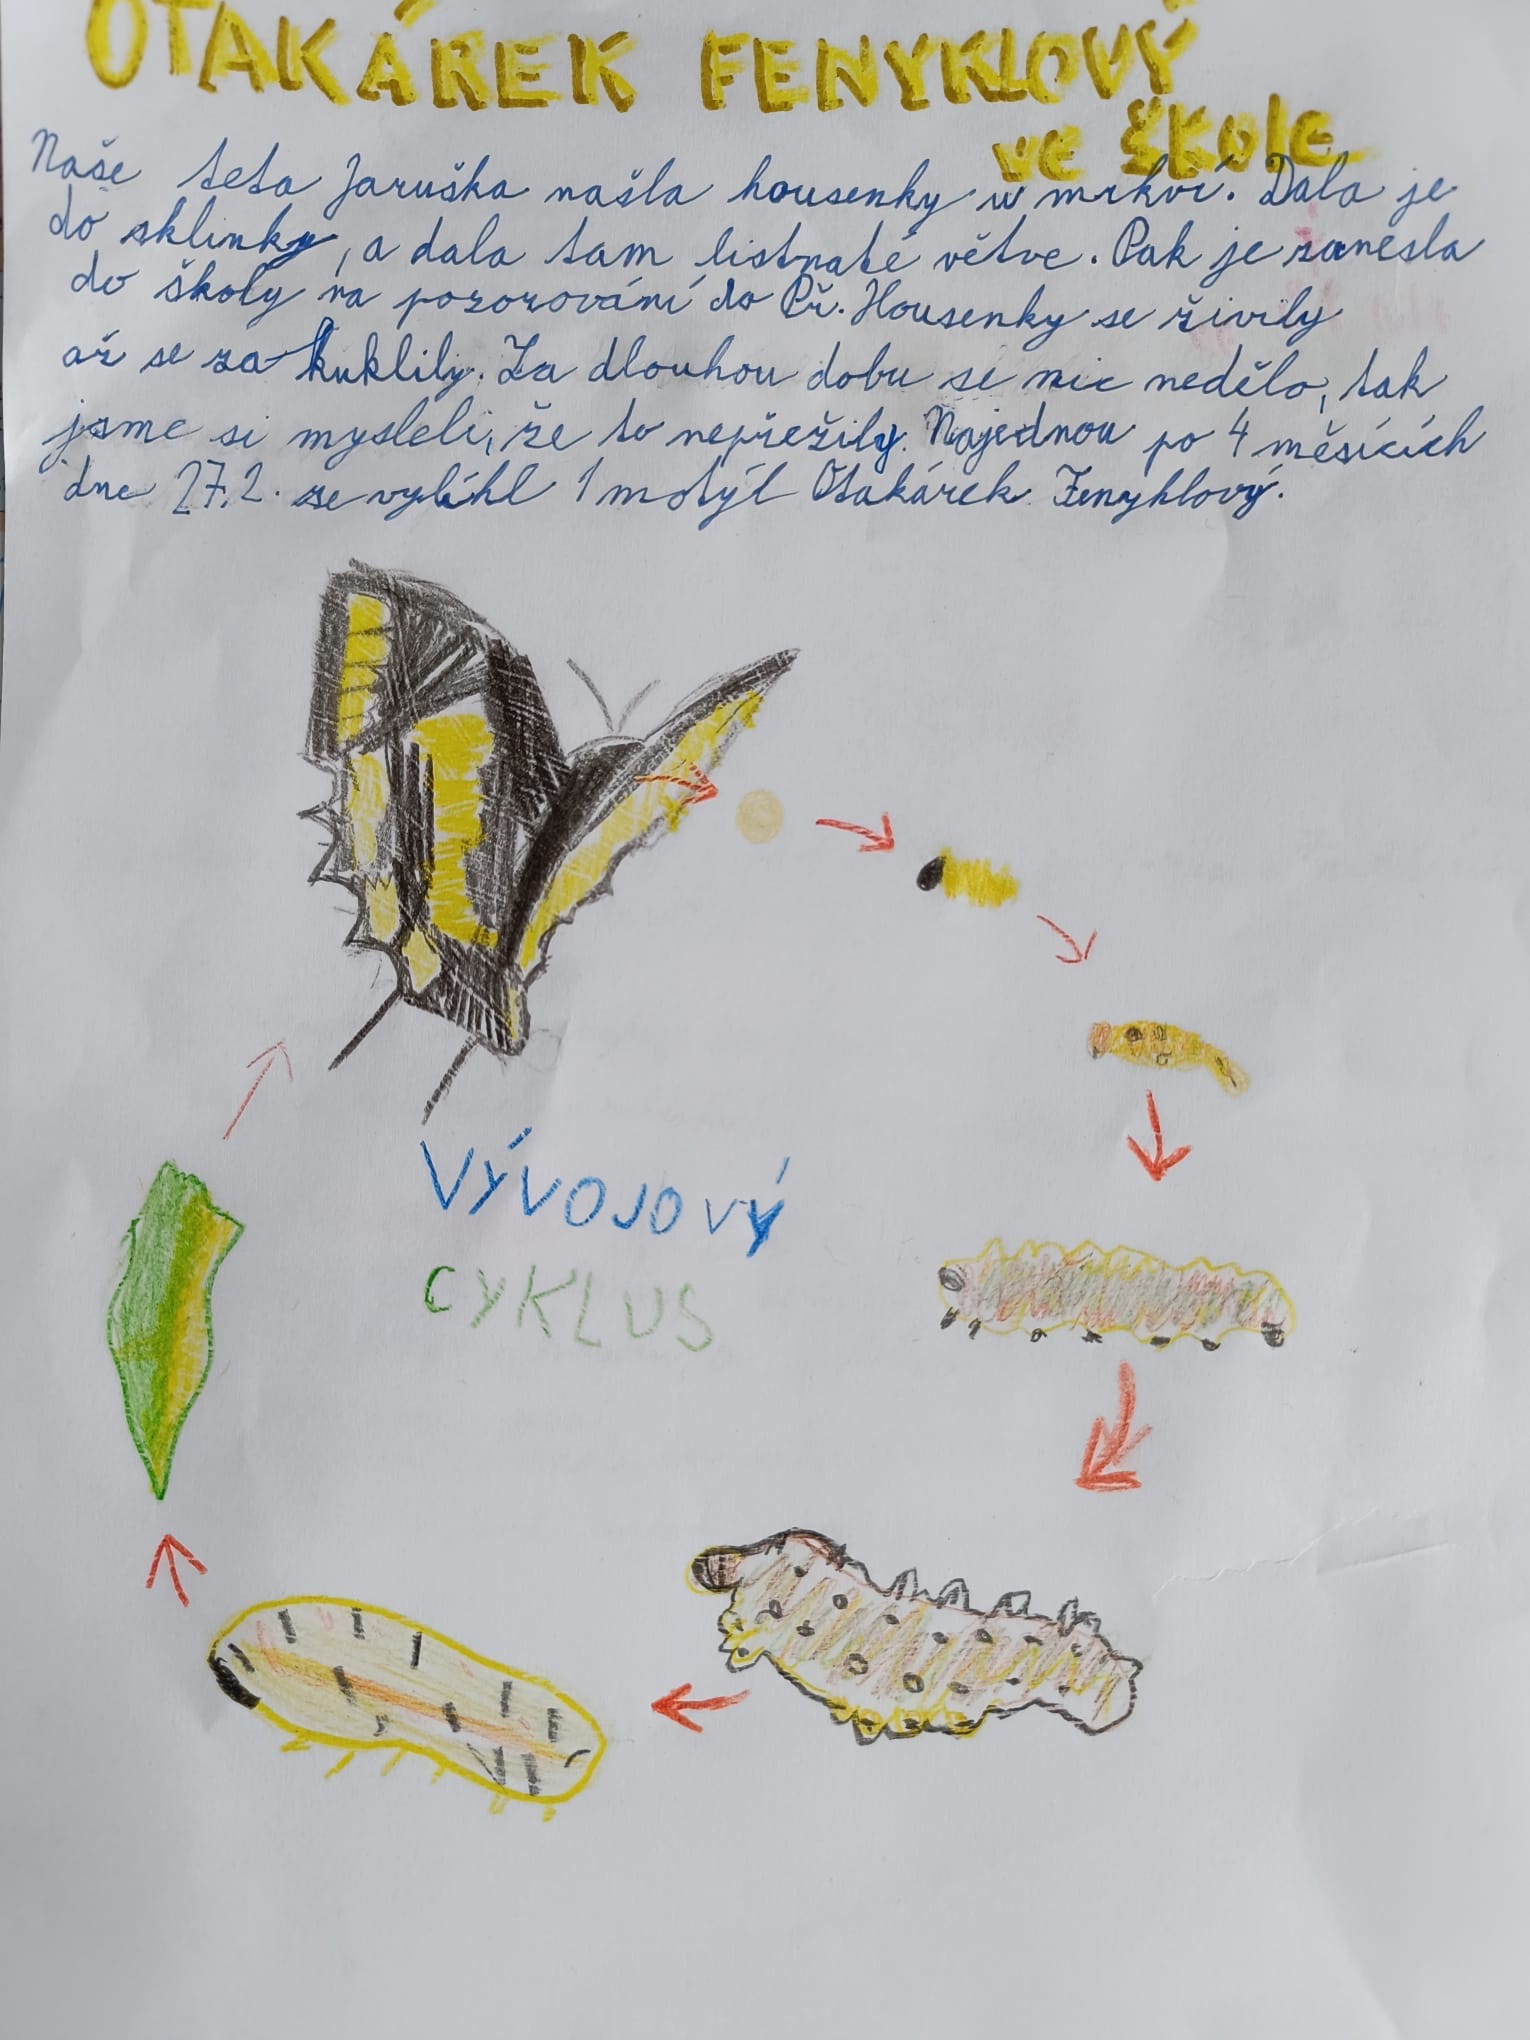 OTAKÁREK FENYKLOVÝ
ve škole
Naše teta Jaruška našla housenky v mrkvi. Dala je
do sklinky, a dala tam listnaté větve. Pak je zanesla
do školy na pozorování do Př. Housenky se živily
až se za kuklily. Za dlouhou dobu se nic nedělo, tak
jsme si mysleli, že to nepřežily. Najednou po 4 měsících
dne 27.2. se vylíhl 1 motýl Otakárek Fenyklový.
VÝVOJOVÝ
CYKLUS